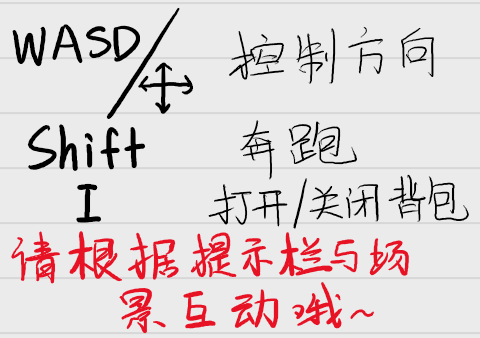 WASD/ 控制方向
Shift 奔跑
I 打开/关闭背包
请根据提示栏与场
景互动哦~